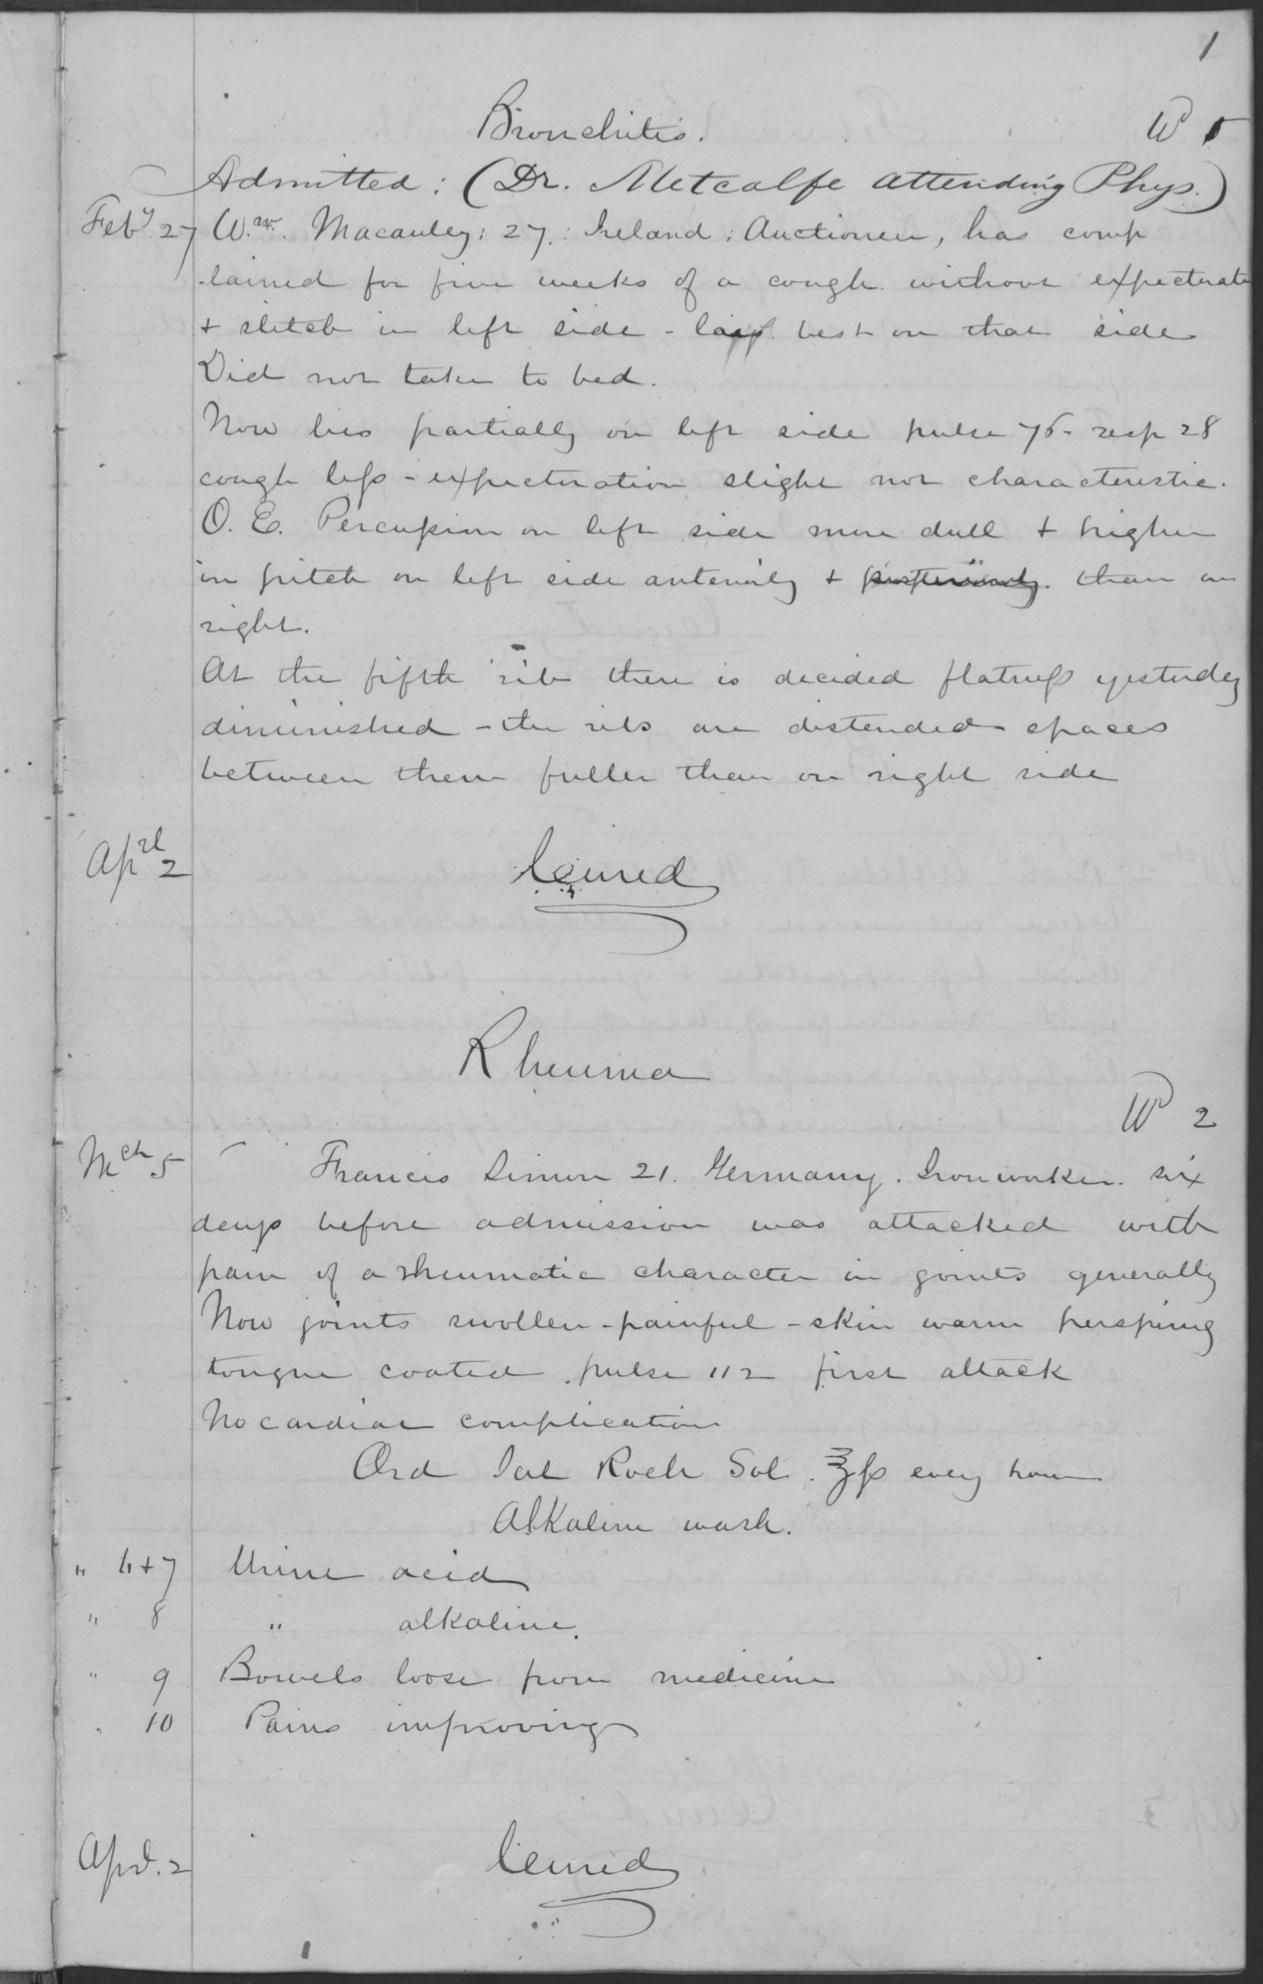 1
Bronchitis. Wd 5
Admitted: (Dr. Metcalfe attending Phys.)
Feby 27 Wm. Macauley; 27.: Ireland: Auctioneer, has comp
lained for five weeks of a cough without expectorati
+ stitch in left side - lays best on that side
Did not take to bed.
Now lies partially on left side pulse 76 - resp 28
cough less - expectoration slight not characteristic.
O. E. Percussion on left side more dull + higher
in pitch on left side anteriorly + posteriorly. than on
right.
At the fifth rib there is decided flatness yesterday
diminished - the ribs are distended spaces
between them fuller than on right side
Aprl 2 Cured
Rheuma
Wd 2
Mch 5 Francis Simon 21. Germany. Ironworker. six
days before admission was attacked with
pain of a rheumatic character in joints generally
Now joints swollen - painful - skin warm perspiring
tongue coated. pulse 112 first attack
No cardiac complication
Ord Sal Roch Sol. ℥ss every hour
Alkaline wash.
" 6+7 Urine acid
" 8 " alkaline.
" 9 Bowels loose from medicine
" 10 Pains improving
Aprl. 2 Cured